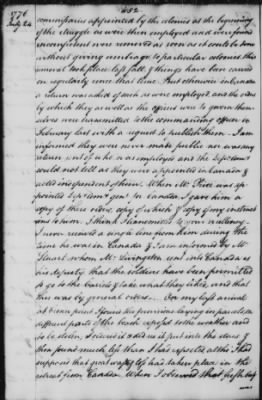 452
1776
July 24
commissaries appointed by the colonies at the beginning
of the struggle as were then employed and were found
unconfined were removed as soon as it could be done
without giving umbrage to particular colonies this
removal took place last fall & things have been carried
on regularly since that time. But otherwise in Canada
a return was asked of such as were employed and the rules
by which they as well as the officers was to govern them
selves were transmitted to the commanding officer in
February last with a request to publish them I am
informed they were never made public nor was any
return sent of who was employed and the
could not tell as they were appointed in Canada &
acted independent of them. When Mr Price was ap
pointed Dep. Com. Genl. for Canada I gave him a
copy of these rules, copy of which & copy of my instruct
ions to him. I think I transmitted to your
I never received a single line from him during the
time he was in Canada & I am informed by Mr
Stuart whom Mr Livingston sent into Canada as
his deputy that the soldiers have been permitted
to go to the barrels & take what they liked, and that
this was by general orders. On my last arrival
at Crown point I found the provision laying in parcels on
different parts of the beach exposed to the weather and
to be stolen, I desired it as it was put into the stores &
then found much less than I had expected altho I had
supposed that great waste had taken place in the
retreat from Canada. When I observed that